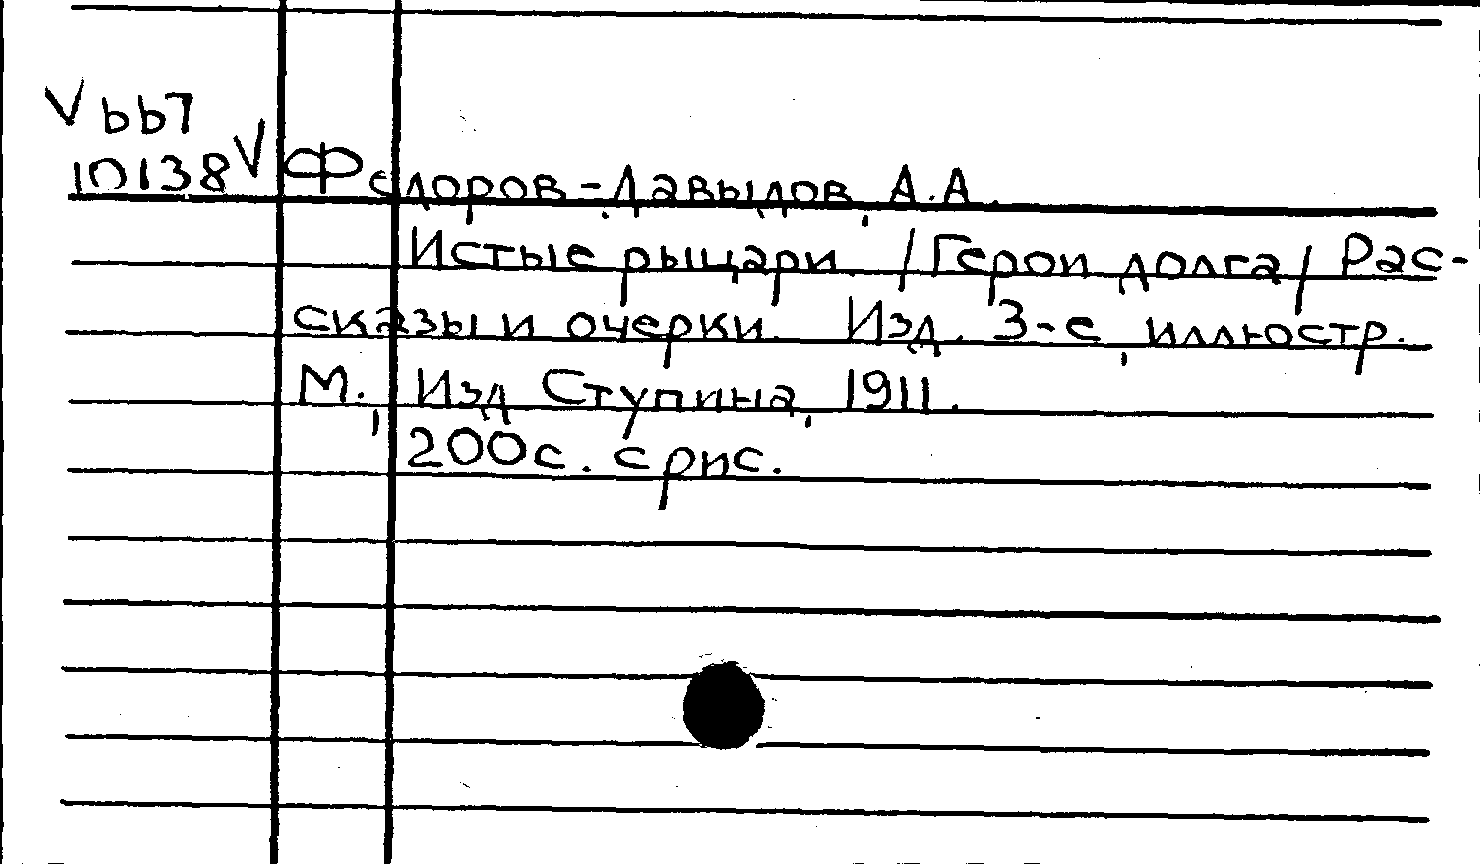 V bb7
10138 V Федоров-Давыдов, А.А.
Истые рыцари. /Герои долга/ Рас-
сказы и очерки. Изд. 3-е, иллюстр.
М., Изд Ступина, 1911.
200с. с рис.